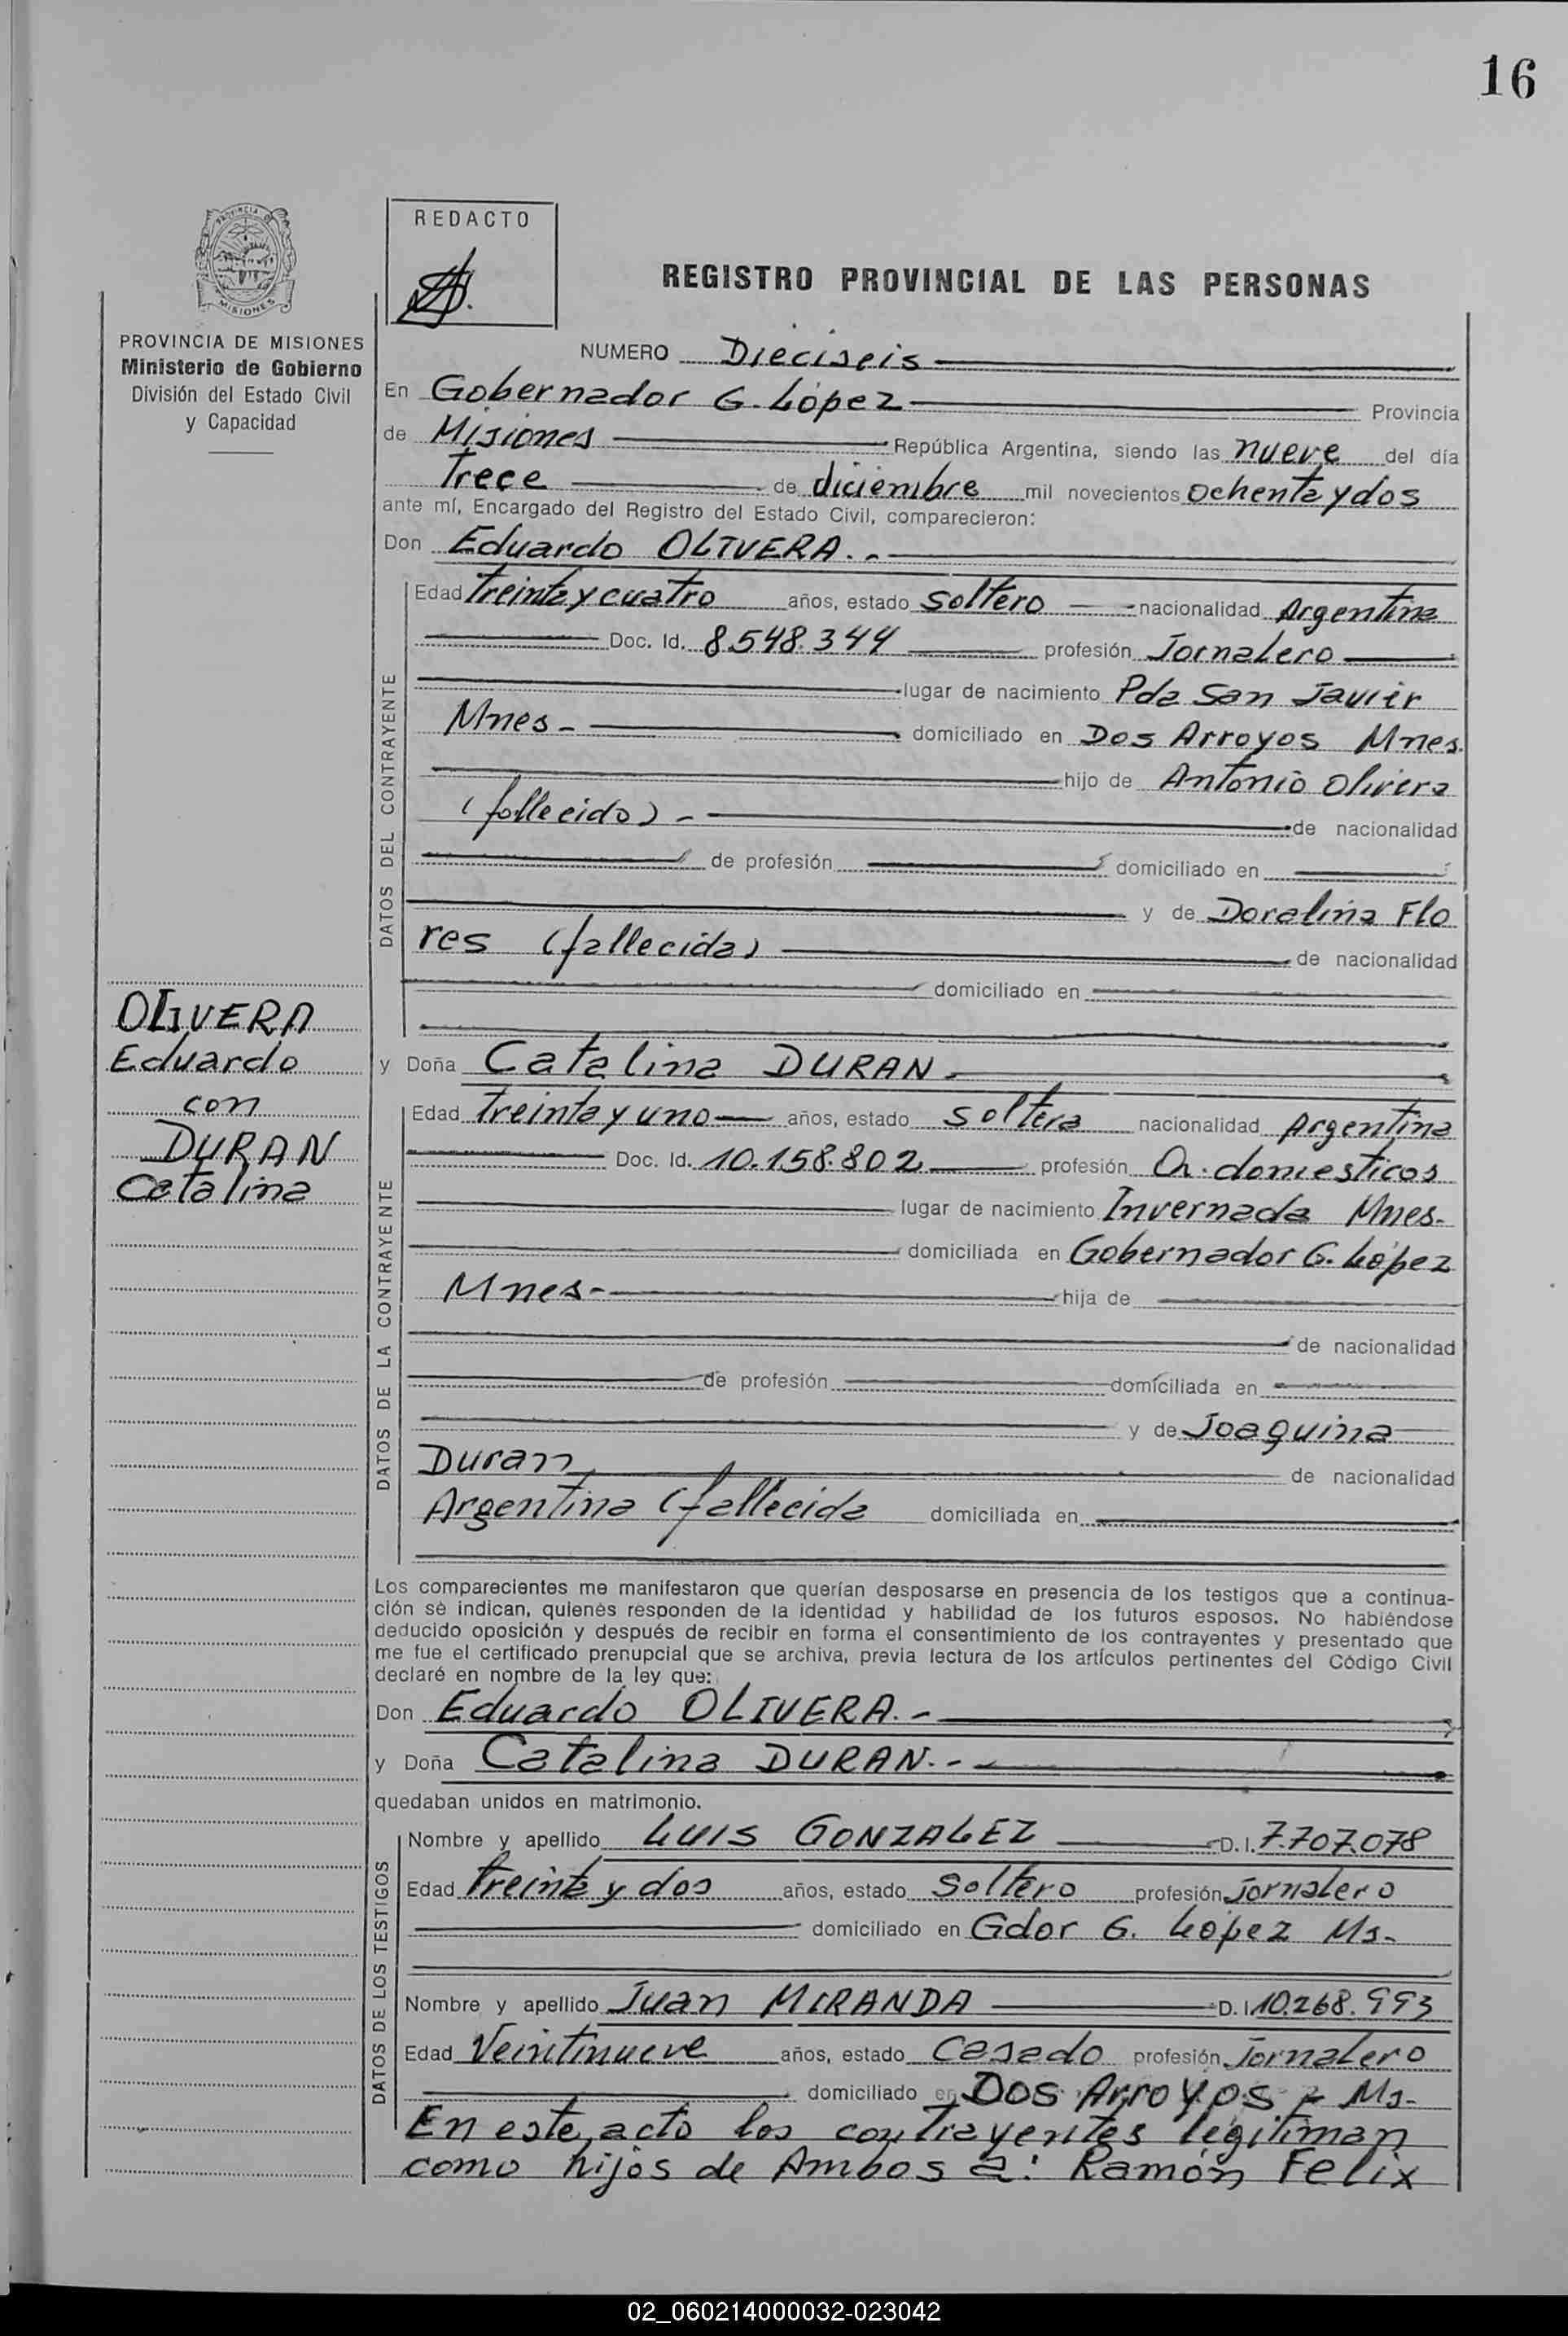 16
REDACTO
REGISTRO PROVINCIAL DE LAS PERSONAS
PROVINCIA DE MISIONES
Ministerio de Gobierno
División del Estado Civil
y Capacidad
NUMERO Dieciseis
En Gobernador G. López Provincia
de Misiones República Argentina, siendo las nueve del día
Trece de diciembre mil novecientos ochenta y dos
ante mí, Encargado del Registro del Estado Civil, comparecieron:
Don Eduardo OLIVERA.-
DATOS DEL CONTRAYENTE
Edad Treinta y cuatro años, estado soltero nacionalidad Argentina
Doc. Id. 8.548.344 profesión Jornalero
lugar de nacimiento Pda San Javier
Mnes- domiciliado en Dos Arroyos Mnes.
hijo de Antonio Olivera
(fallecido)- de nacionalidad
de profesión domiciliado en
y de Doralina Flo
res (fallecida) de nacionalidad
domiciliado en
OLIVERA
Eduardo
con
DURAN
Catalina
y Doña Catalina DURAN-
DATOS DE LA CONTRAYENTE
Edad Treinta y uno- años, estado soltera nacionalidad Argentina
Doc. Id. 10.158.802 profesión Q. domesticos
lugar de nacimiento Invernada Mnes-
domiciliada en Gobernador G. López
Mnes- hija de
de nacionalidad
de profesión domiciliada en
y de Joaquina
Duran de nacionalidad
Argentina (fallecida domiciliada en
Los comparecientes me manifestaron que querían desposarse en presencia de los testigos que a continua-
ción se indican, quienes responden de la identidad y habilidad de los futuros esposos. No habiéndose
deducido oposición y después de recibir en forma el consentimiento de los contrayentes y presentado que
me fue el certificado prenupcial que se archiva, previa lectura de los artículos pertinentes del Código Civil
declaré en nombre de la ley que:
Don Eduardo OLIVERA.-
y Doña Catalina DURAN.--
quedaban unidos en matrimonio.
DATOS DE LOS TESTIGOS
Nombre y apellido LUIS GONZALEZ D.I. 7.707.078
Edad Treinta y dos años, estado soltero profesión Jornalero
domiciliado en Gdor G. López Ms-
Nombre y apellido Juan MIRANDA D.I. 10.268.993
Edad Veintinueve años, estado Casado profesión Jornalero
domiciliado en Dos Arroyos - Ms-
En este acto los contrayentes legitiman
como hijos de Ambos a: Ramón Felix
02_060214000032-023042